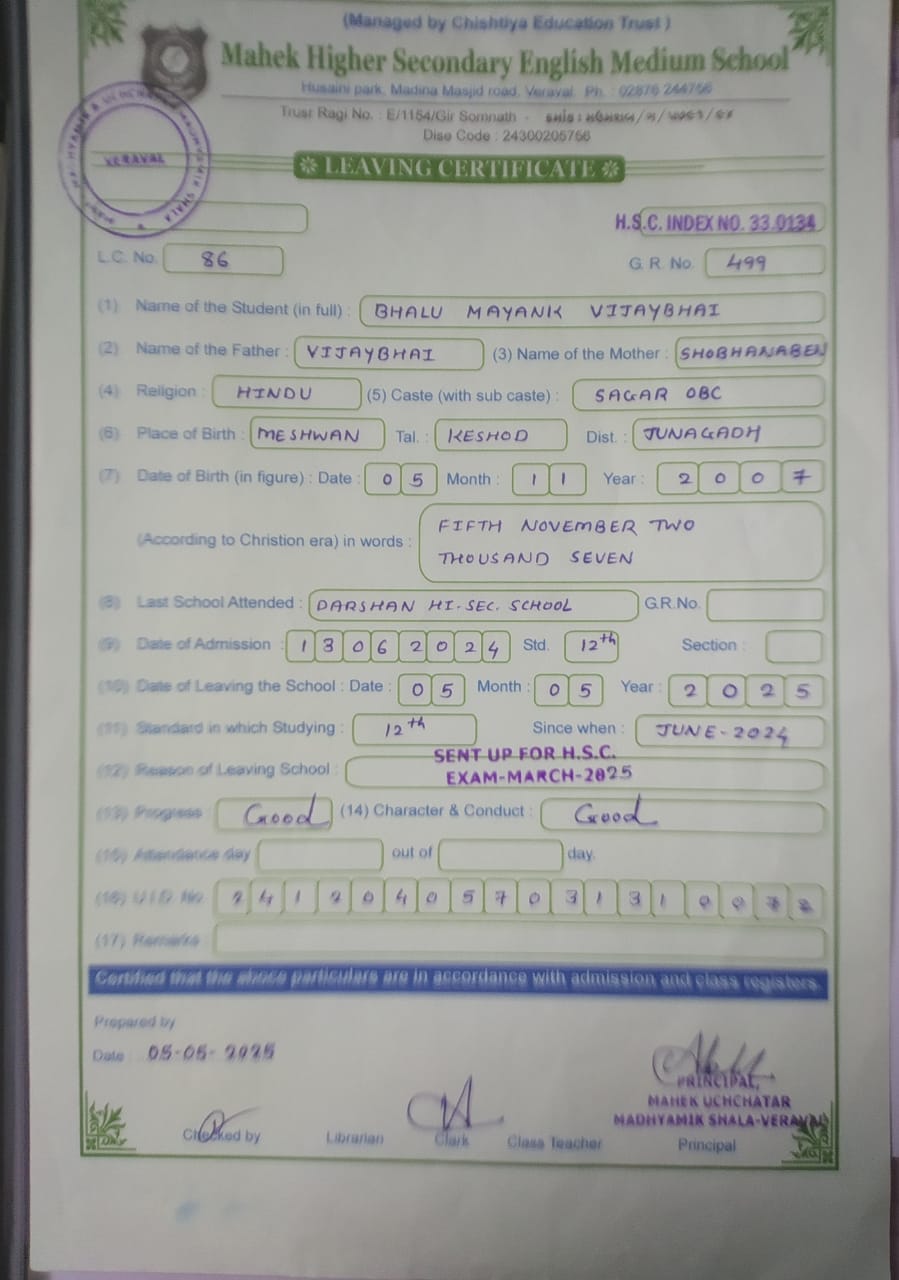 (Managed by Chishtiya Education Trust)
Mahek Higher Secondary English Medium School
Husaini park, Madina Masjid road, Veraval. Ph. : 02876 244766
Trust Ragi No. : E/1154/Gir Somnath -
Dise Code : 24300205756
VERAVAL
LEAVING CERTIFICATE
H.S.C. INDEX NO. 33.0134
L.C. No. 86 G. R. No. 499
(1) Name of the Student (in full) : BHALU MAYANK VIJAYBHAI
(2) Name of the Father : VIJAYBHAI (3) Name of the Mother : SHOBHANABEN
(4) Religion : HINDU (5) Caste (with sub caste) : SAGAR OBC
(6) Place of Birth : MESHWAN Tal. : KESHOD Dist. : JUNAGADH
(7) Date of Birth (in figure) : Date : 05 Month : 11 Year : 2007
(According to Christion era) in words : FIFTH NOVEMBER TWO
THOUSAND SEVEN
(8) Last School Attended : DARSHAN HI-SEC. SCHOOL G.R.No.
(9) Date of Admission : 13062024 Std. 12th Section :
(10) Date of Leaving the School : Date : 05 Month : 05 Year : 2025
(11) Standard in which Studying : 12th Since when : JUNE-2024
(12) Reason of Leaving School : SENT UP FOR H.S.C.
EXAM-MARCH-2025
(13) Progress : Good (14) Character & Conduct : Good
(15) Attendance day out of day.
(16) U I D No.
(17) Remarks
Certified that the above particulars are in accordance with admission and class registers.
Prepared by
Date : 05-05-2025
PRINCIPAL,
MAHEK UCHCHATAR
MADHYAMIK SHALA-VERAVAL
Checked by Librarian Clark Class Teacher Principal